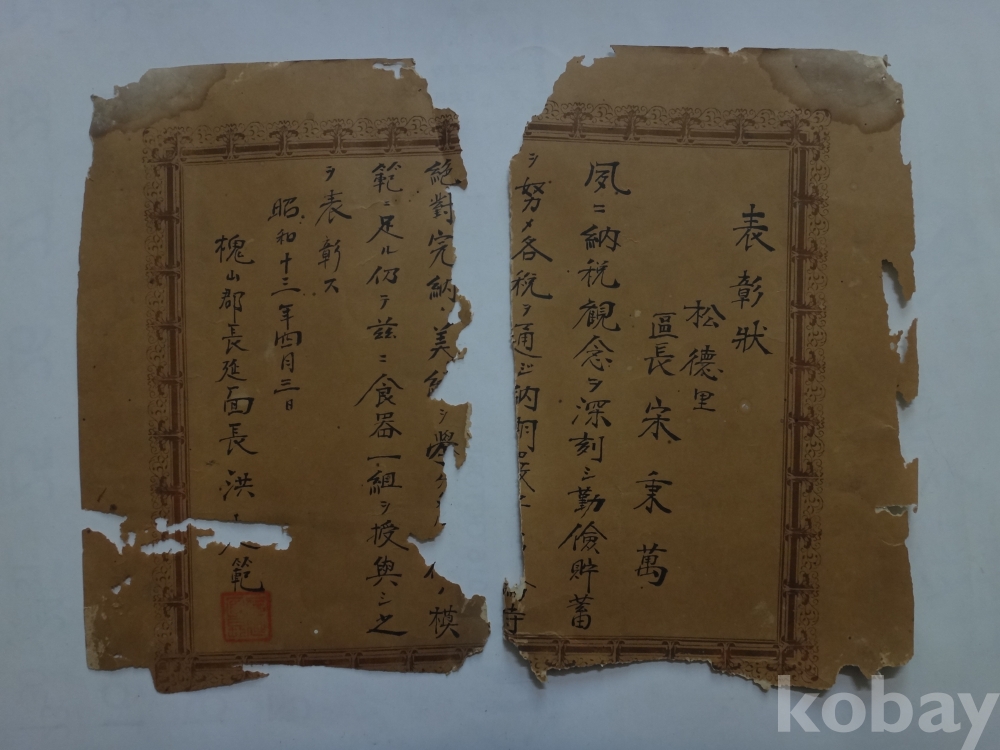 表彰狀
松德里
區長 宋秉萬
夙ニ納税觀念ヲ深刻ニシ勤儉貯蓄
ヲ努メ各税ヲ通ジ納期
絶對完納 美 ヲ擧ゲ ノ模
範ニ足ル仍テ玆ニ食器一組ヲ授與シ之
ヲ表彰ス
昭和十三年四月三日
槐山郡長延面長 洪 範
kobay